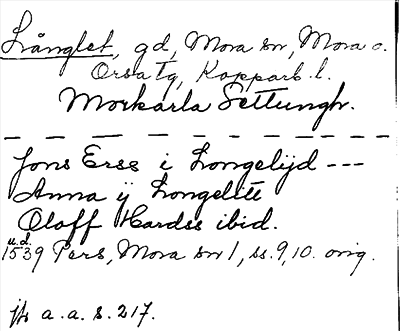 Långlet, gd, Mora sn, Mora o.
Orsa tg, Kopparb. l.
Morkarla Settungh.
Jons Erss i Longelijd ---
Anna ÿ Longelitt
Oloff Hardss ibid.
u.d.
1539 Pers, Mora sn 1, ss. 9, 10. orig.
jfr a.a. s. 217.